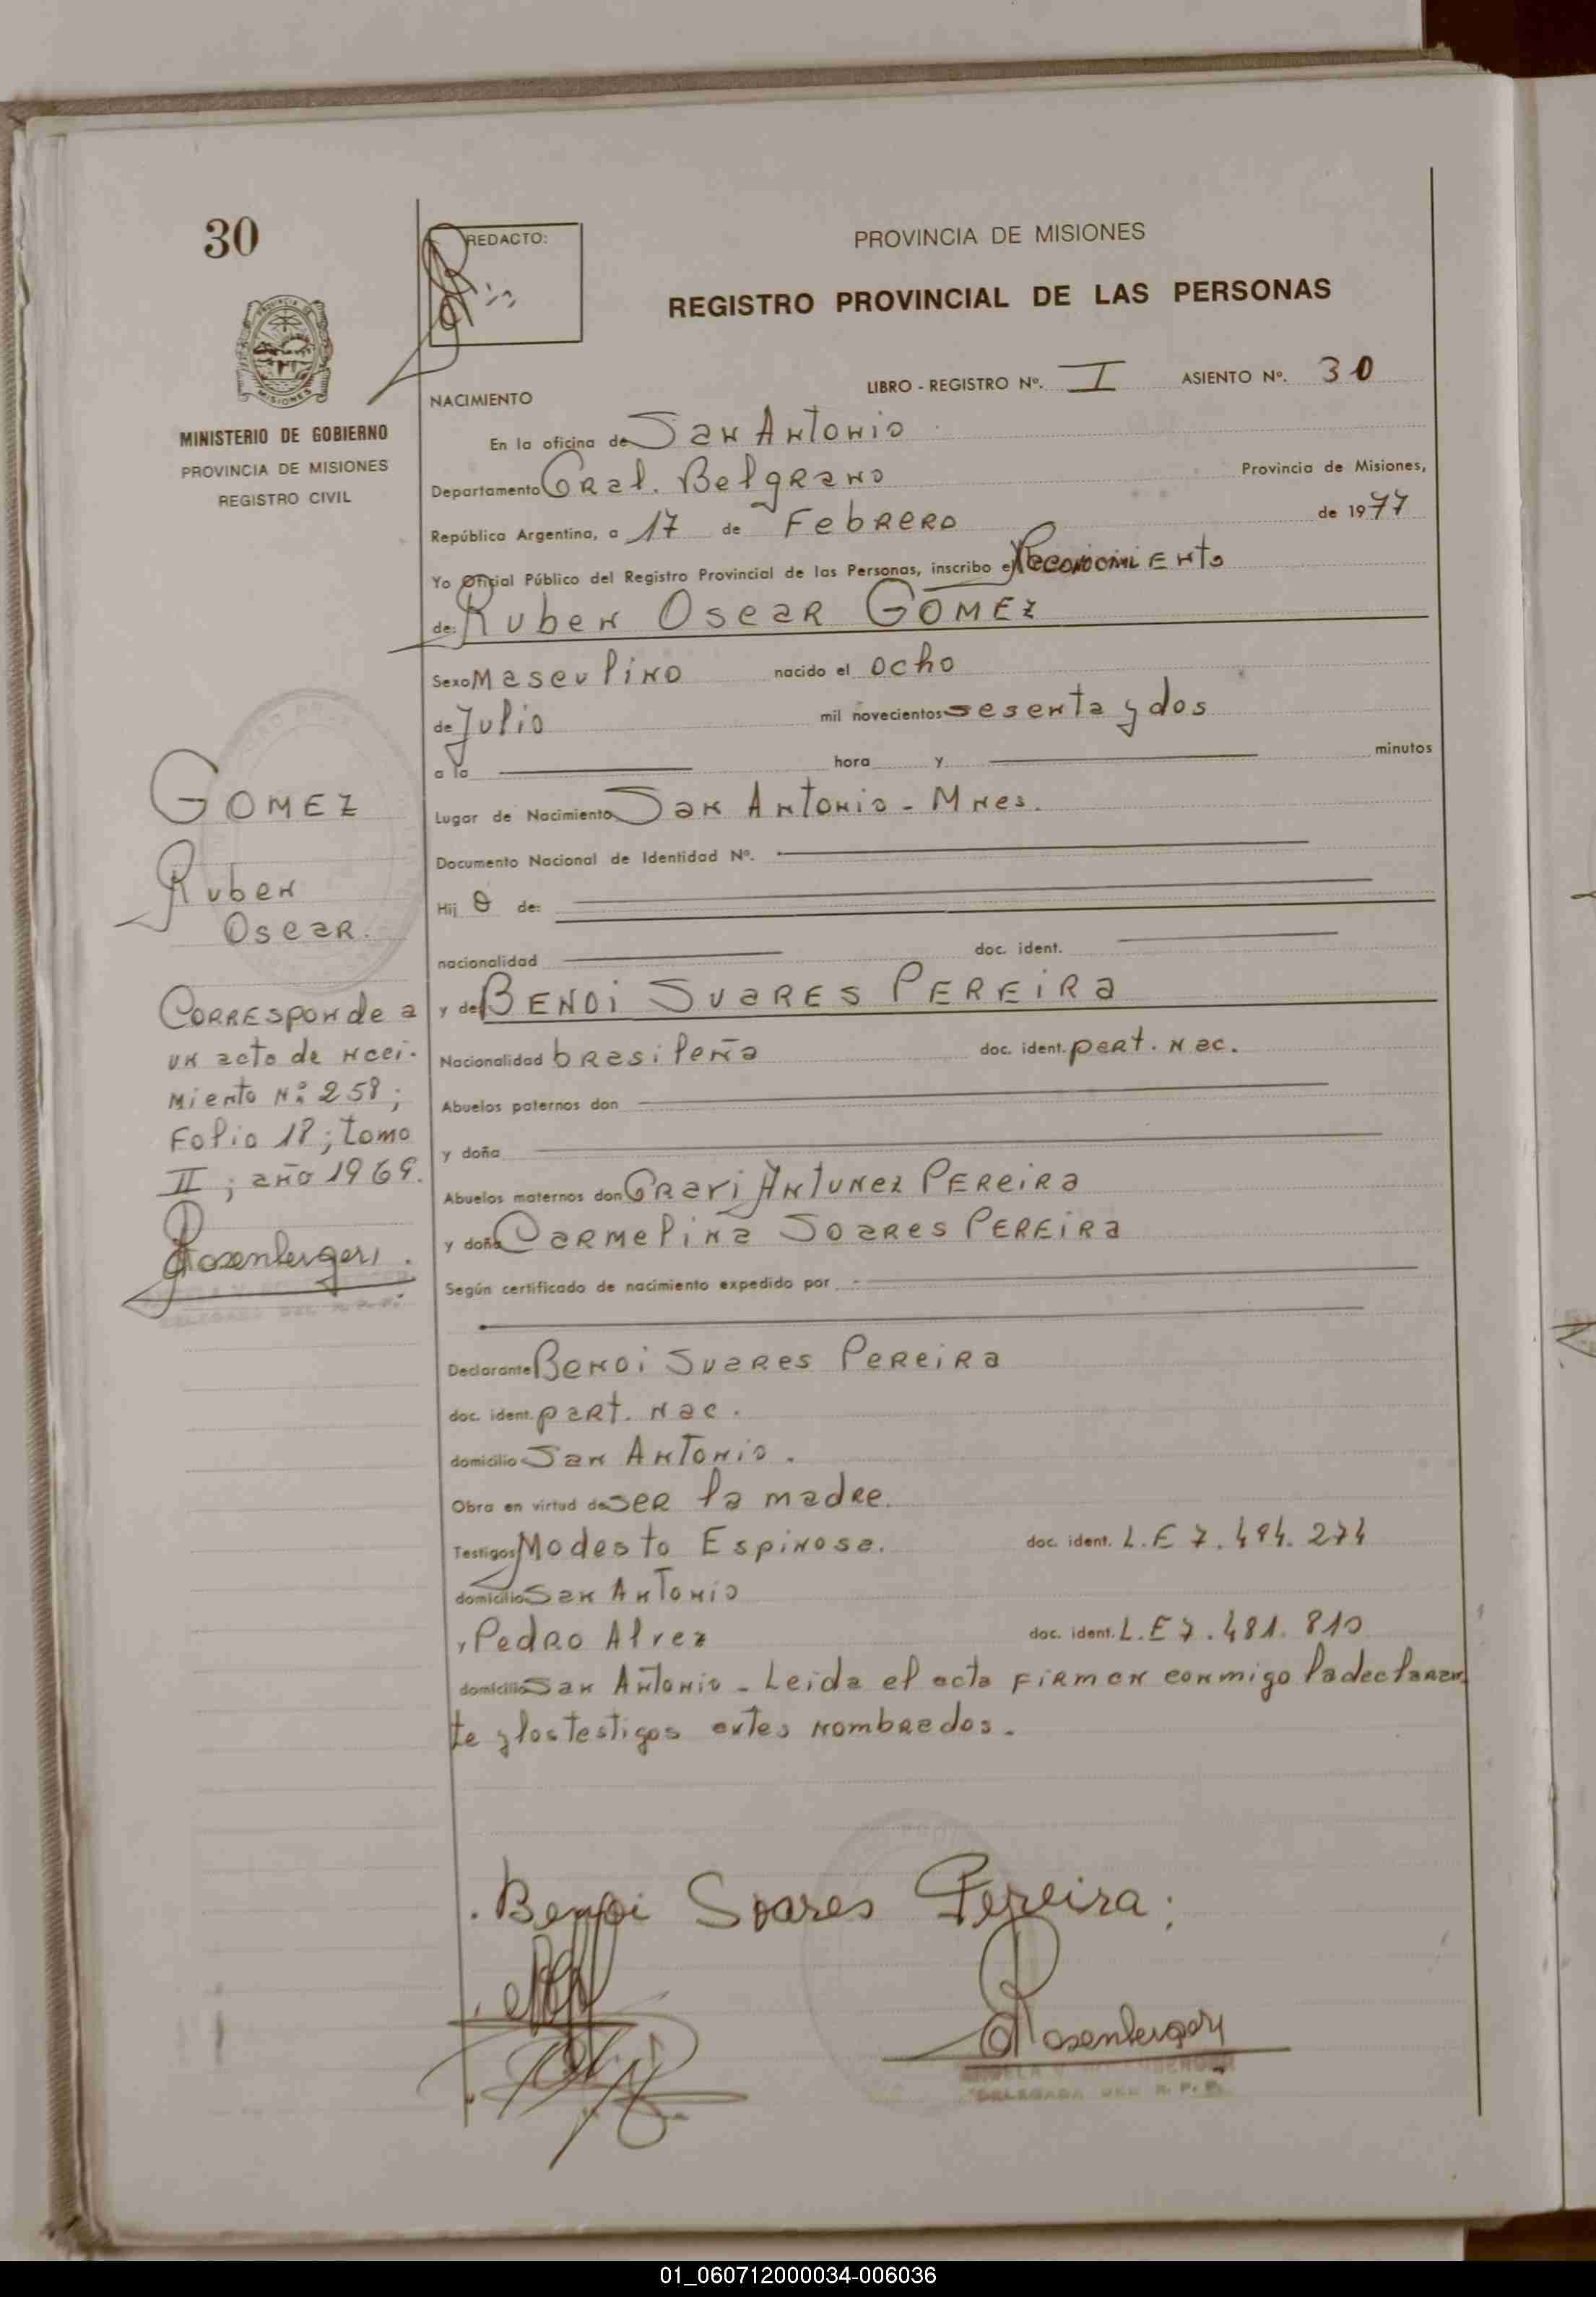 30
REDACTO:
PROVINCIA DE MISIONES
REGISTRO PROVINCIAL DE LAS PERSONAS
MINISTERIO DE GOBIERNO
PROVINCIA DE MISIONES
REGISTRO CIVIL
LIBRO - REGISTRO Nº. I ASIENTO Nº. 30
NACIMIENTO
En la oficina de San Antonio
Departamento Gral. Belgrano Provincia de Misiones,
República Argentina, a 17 de Febrero de 1977
Yo Oficial Público del Registro Provincial de las Personas, inscribo el Reconocimiento
de: Ruben Oscar GOMEZ
Sexo Masculino nacido el ocho
de Julio mil novecientos sesenta y dos
a la hora y minutos
Lugar de Nacimiento San Antonio - Mnes.
Documento Nacional de Identidad Nº.
Hij o de:
nacionalidad doc. ident.
y de BENDI SUARES PEREIRA
Nacionalidad brasileña doc. ident. part. nac.
Abuelos paternos don
y doña
Abuelos maternos don Antunez PEREIRA
y doña Carmelina SOARES PEREIRA
Según certificado de nacimiento expedido por
Declarante Bendi Suares Pereira
doc. ident. part. nac.
domicilio San Antonio.
Obra en virtud de ser la madre.
Testigos Modesto Espinosa. doc. ident. L.E 7.494.274
domicilio San Antonio
y Pedro Alvez doc. ident. L.E 7.481.810
domicilio San Antonio - Leida el acta firman conmigo la declaran
te y los testigos antes nombrados.
GOMEZ
Ruben
Oscar.
Corresponde a
un acta de ncei-
miento Nº 258;
Folio 18; tomo
II; año 1969.
Rosenberger
DELEGADA DEL R. P. P.
Bendi Soares Pereira
Rosenberger
ANGELA V. ROSENBERGER
DELEGADA DEL R. P. P.
01_060712000034-006036